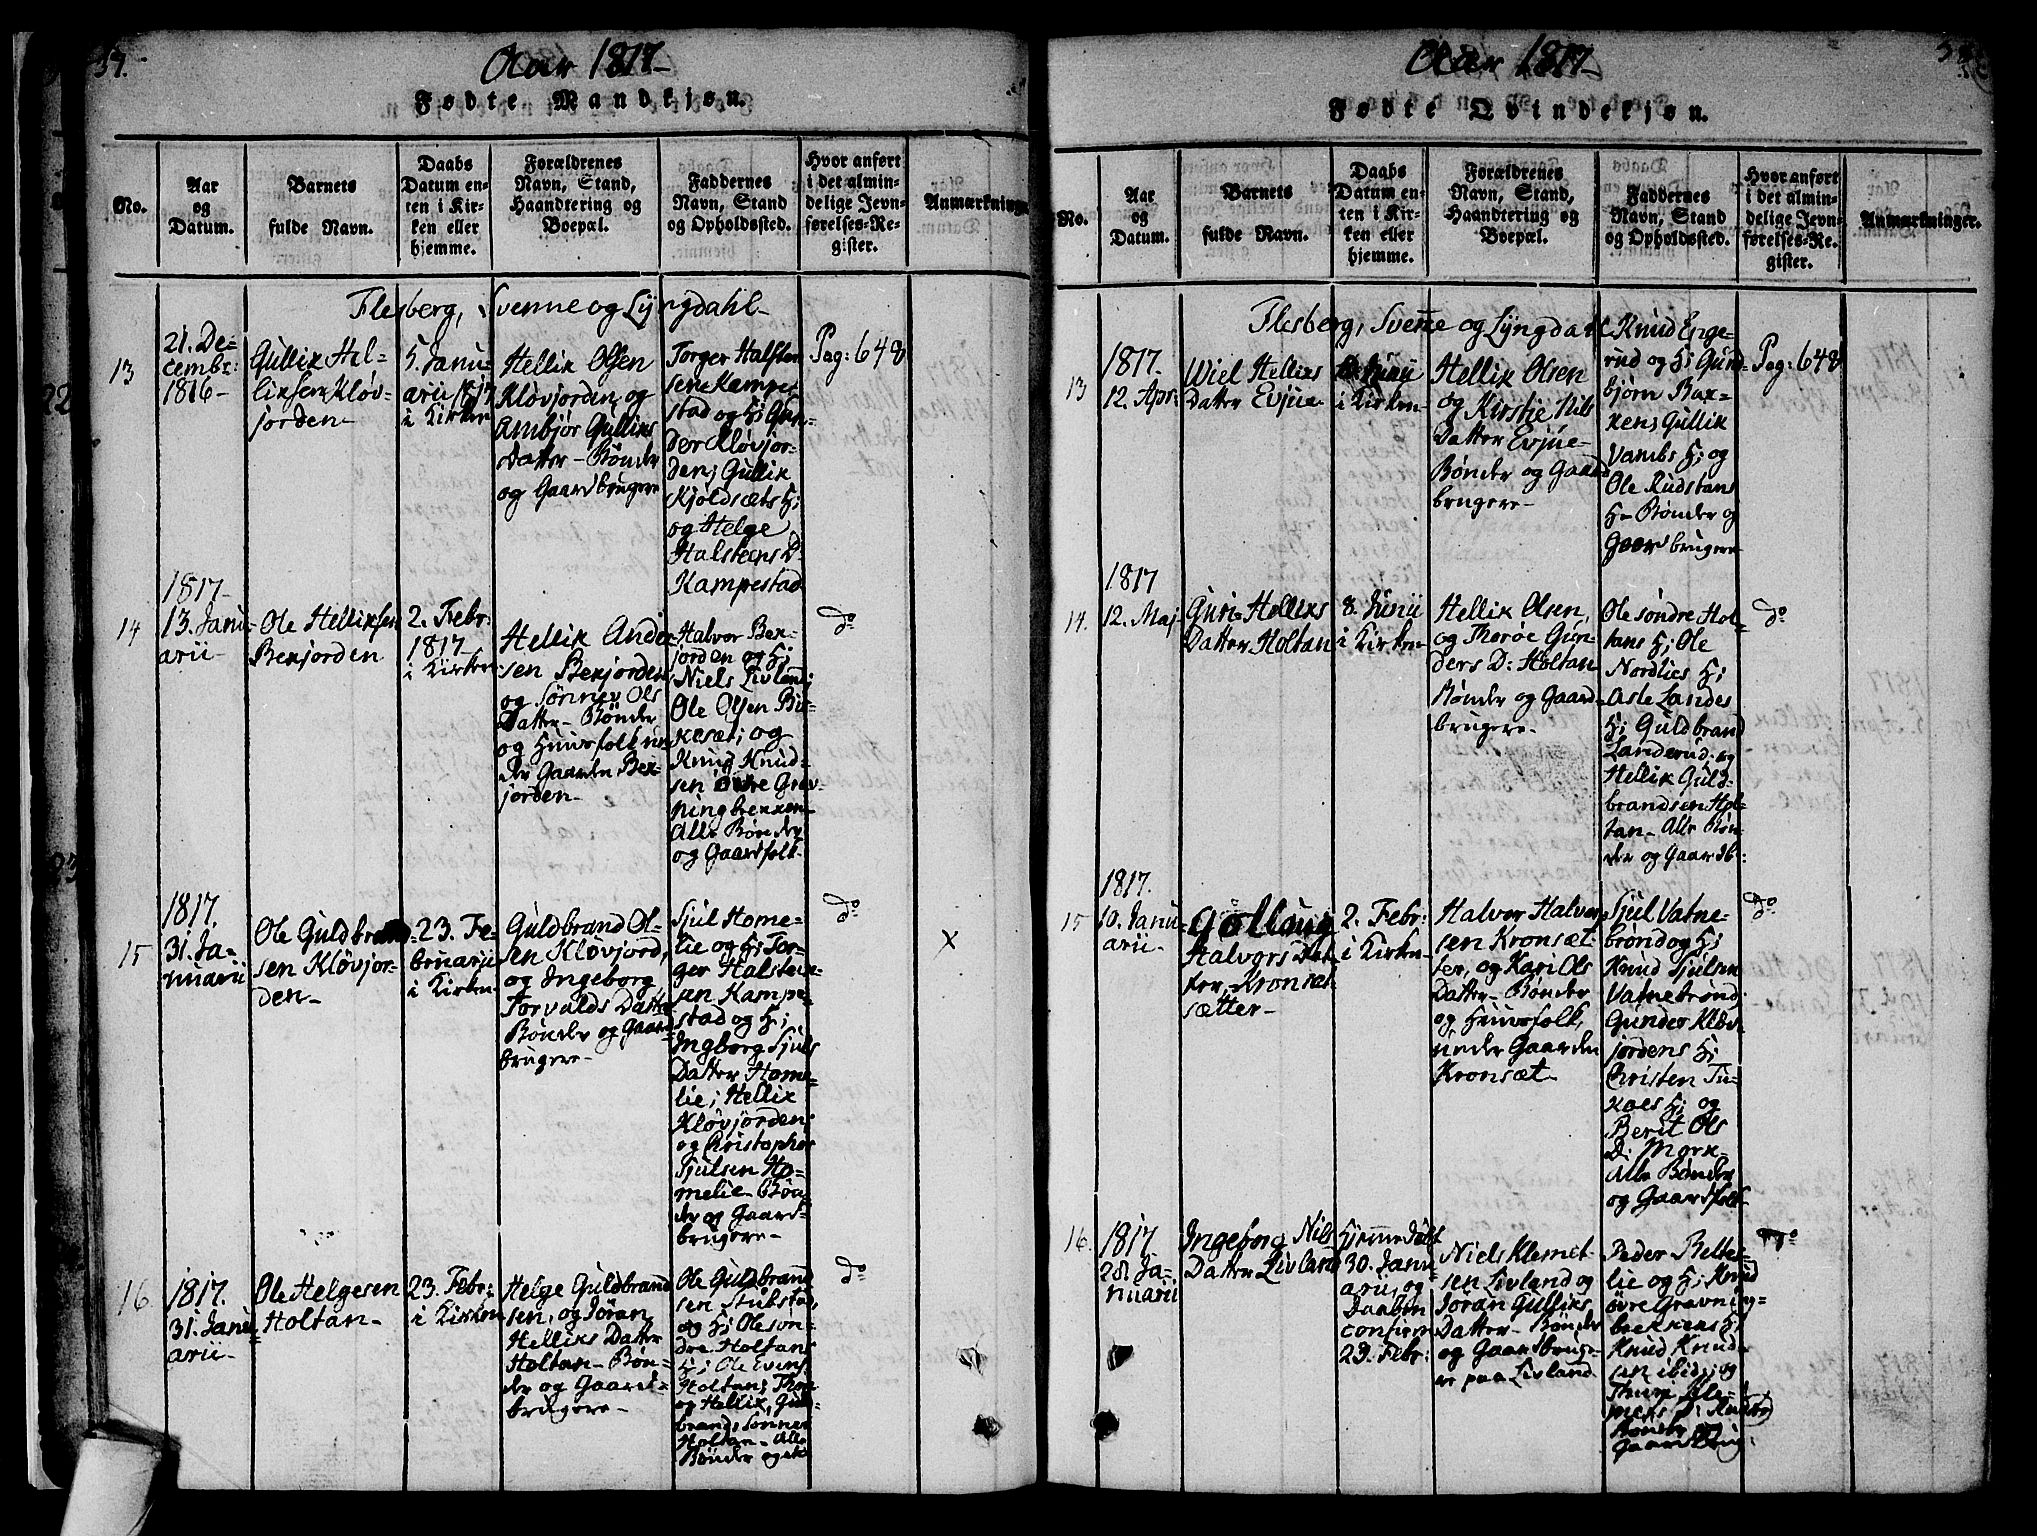 37.
Aar 1817-
Fødte Mandkjøn.
No.
Aar
og
Datum.
Barnets
fulde Navn.
Daabs
Datum en-
ten i Kir-
ken eller
hjemme.
Forældrenes
Navn, Stand,
Haandtering og
Boepæl.
Faddernes
Navn, Stand
og Opholdssted.
Hvor anført
i det almin-
delige Jevn-
førelses-Re-
gister.
Anmærkninge
Flesberg, Svenne og Lyngdahl-
13
21. De-
cembr:
1816-
Gullik Hel-
liksen Kløv-
jorden-
5. Janu-
arii 1817
i Kirken
Hellik Olsen
Kløvjorden og
Ambjør Gulliks
Datter- Bønder
og Gaardbrugere
Torger Halsten
sen Kampe-
stad og H; Gun-
der Kløvjor-
den; Gullik
Kjoldsæts H;
og Helge
Halstens D.
Kampestad
Pag: 648
14
1817-
13. Janu-
arii-
Ole Helliksen
Bekjorden
2. Febr:
1817-
i Kirken
Hellik Ander
sen Bekjorden
og Sønnev Ols
Datter- Bønder
og Huusfolk un-
der Gaarden Bek-
jorden-
Halvor Bek-
jorden og H;
Niels Livland;
Ole Olsen Bu-
kesæt; og
Knud Knud-
sen øvre Grav-
ningbekken-
Alle Bønder
og Gaardfolk-
do
15
1817.
31. Ja-
nuarii
Ole Guldbrand-
sen Kløvjor-
den-
23. Fe-
bruarii
i Kirken
Guldbrand Ol-
sen Kløvjord,
og Ingeborg
Torvalds Datter
Bønder og Gaard-
brugere-
Sjul Home-
lie og H; Tor-
ger Halsten-
sen Kampe-
stad og H;
Ingborg Sjuls
Datter Home-
lie; Hellik
Kløvjorden;
og Christopher
Sjulsen Ho-
melie- Bøn-
der og Gaard-
brugere-
do
x
16
1817.
31. Janu-
arii-
Ole Helgesen
Holtan-
23. Febr:
i Kirken
Helge Guldbrand
sen, og Jøran
Helliks Datter
Holtan- Bøn-
der og Gaard-
brugere-
Ole Guldbrand
sen Stubstad,
og H; Ole søn-
dre Holtans
H; Ole Evens
Holtan;
og Hellik Guld
brands Sønner
Holtan- Alle
Bønder
do
Aar 1817-
Fødte Qvindekjøn.
No.
Aar
og
Datum.
Barnets
fulde Navn.
Daabs
Datum en-
ten i Kir-
ken eller
hjemme.
Forældrenes
Navn, Stand,
Haandtering og
Boepæl.
Faddernes
Navn, Stand
og Opholdssted.
Hvor anført
i det almin-
delige Jevn-
førelses-Re-
gister.
Anmærkninger.
Flesberg, Svenne og Lyngdahl
13
1817.
12. Apr:
Wiel Helliks
Datter Evjue
Junii
i Kirken-
Hellik Olsen
og Kirstie Nils
Datter Evjue-
Bønder og Gaard
brugere-
Knud Enge-
rud og H; Gun-
bjørn Bak-
ken; Gullik
Vambs H; og
Ole Rudstans
H- Bønder og
Gaardbrugere
Pag: 648
14.
1817
12. Maj
Guri Helliks
Datter Holtan
8. Junii
i Kirken
Hellik Olsen,
og Thorøe Gun-
ders D: Holtan
Bønder og Gaard-
brugere-
Ole søndre Hol-
tans H; Ole
Nordlies H;
Asle Landes
H; Guldbrand
Landerud; og
Hellik Guld-
brandsen Hol-
tan- Alle Bøn-
der og Gaardb:
do
15
1817.
10. Janu-
arii-
Gollaug
Halvors Dat-
ter Kronsæt-
sætter-
2. Febr:
i Kirken-
Halvor Halvor-
sen Kronsæt-
ter, og Kari Ols
Datter- Bønder
og Huusfolk,
under Gaarden
Kronsæt-
Sjul Vatne-
brønd og H;
Knud Sjulsen
Vatnebrønd;
Gunder Kløv-
jordens H;
Christen Tu-
kaes H; og
Berit Ols
D: Mørk-
Alle Bønder
og Gaardfolk-
do
16.
1817
28. Ja-
nuarii
Ingeborg Nils
Datter Livland
Hjemmedøbt
30. Janu-
arii, og
Daaben
confirm
23. Febr:
Niels Klemet-
sen Livland og
Jøran Gulliks
Datter- Bønder
og Gaardbruge-
re paa Livland
Peder Belte-
lie og H; Knud
øvre Gravning-
bekkens H;
Knud Knud-
sen ibid; og
Bønder og
Gaardbrug:
do